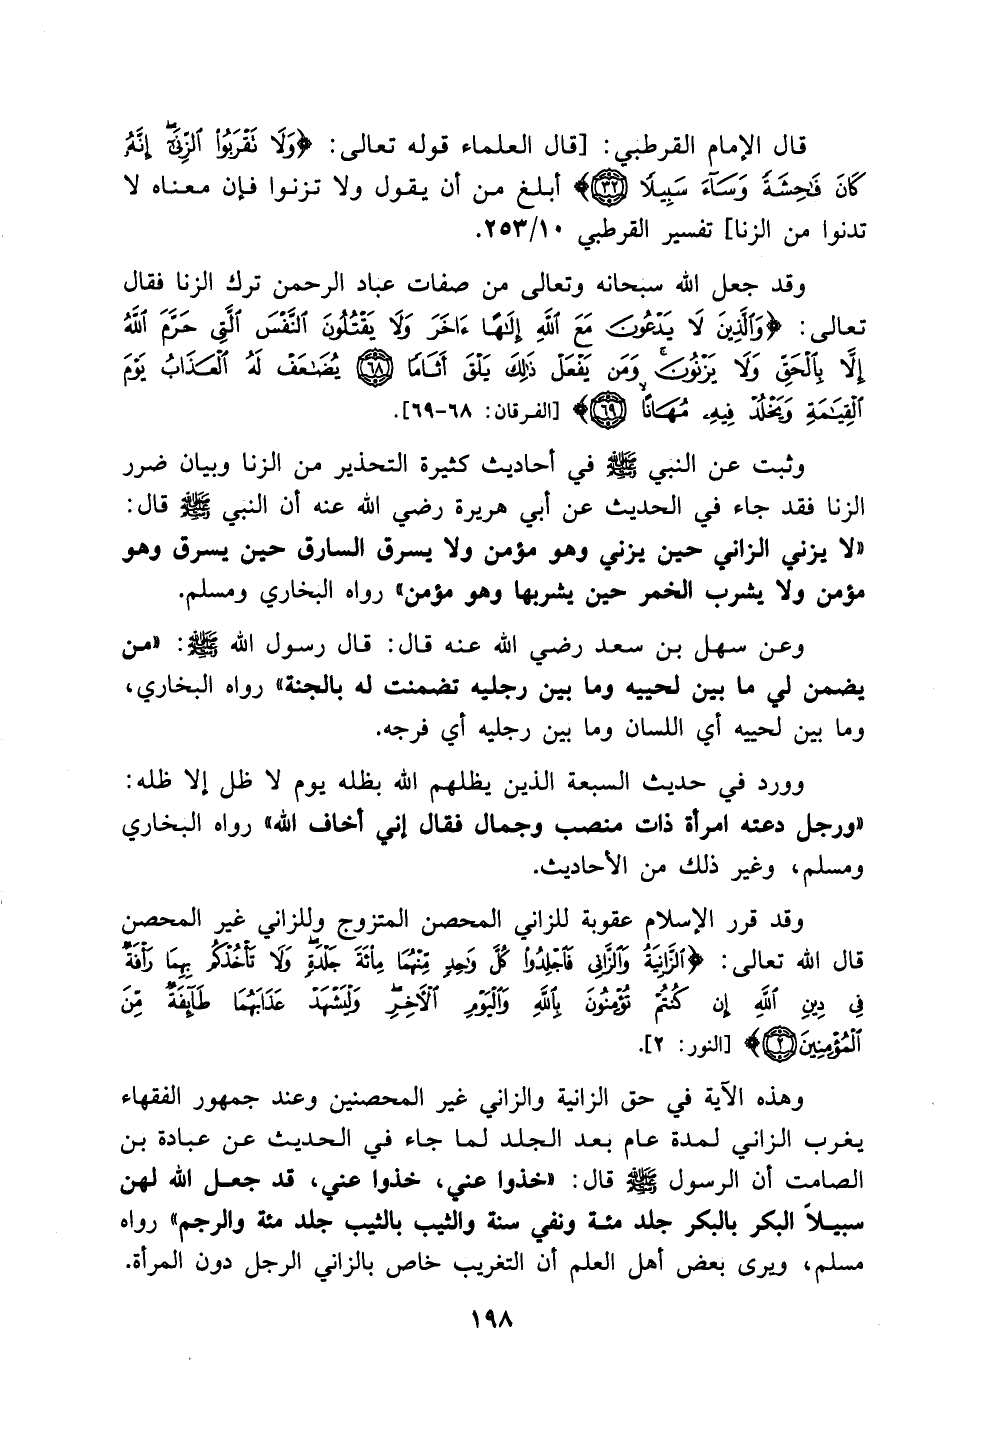 قال الإمام القرطبي: [قال العلماء قوله تعالى: ﴿وَلَا تَقْرَبُوا۟ ٱلزِّنَىٰٓ ۖ إِنَّهُۥ
كَانَ فَـٰحِشَةً وَسَآءَ سَبِيلًا ﴿٣٢﴾﴾ أبلغ من أن يقول ولا تزنوا فإن معناه لا
تدنوا من الزنا] تفسير القرطبي ٢٥٣/١٠.
وقد جعل الله سبحانه وتعالى من صفات عباد الرحمن ترك الزنا فقال
تعالى: ﴿وَٱلَّذِينَ لَا يَدْعُونَ مَعَ ٱللَّهِ إِلَـٰهًا ءَاخَرَ وَلَا يَقْتُلُونَ ٱلنَّفْسَ ٱلَّتِى حَرَّمَ ٱللَّهُ
إِلَّا بِٱلْحَقِّ وَلَا يَزْنُونَ ۚ وَمَن يَفْعَلْ ذَٰلِكَ يَلْقَ أَثَامًا ﴿٦٨﴾ يُضَـٰعَفْ لَهُ ٱلْعَذَابُ يَوْمَ
ٱلْقِيَـٰمَةِ وَيَخْلُدْ فِيهِۦ مُهَانًا ﴿٦٩﴾﴾ [الفرقان: ٦٨-٦٩].
وثبت عن النبي ﷺ في أحاديث كثيرة التحذير من الزنا وبيان ضرر
الزنا فقد جاء في الحديث عن أبي هريرة رضي الله عنه أن النبي ﷺ قال:
«لا يزني الزاني حين يزني وهو مؤمن ولا يسرق السارق حين يسرق وهو
مؤمن ولا يشرب الخمر حين يشربها وهو مؤمن» رواه البخاري ومسلم.
وعن سهل بن سعد رضي الله عنه قال: قال رسول الله ﷺ: «من
يضمن لي ما بين لحييه وما بين رجليه تضمنت له بالجنة» رواه البخاري،
وما بين لحييه أي اللسان وما بين رجليه أي فرجه.
وورد في حديث السبعة الذين يظلهم الله بظله يوم لا ظل إلا ظله:
«ورجل دعته امرأة ذات منصب وجمال فقال إني أخاف الله» رواه البخاري
ومسلم، وغير ذلك من الأحاديث.
وقد قرر الإسلام عقوبة للزاني المحصن المتزوج وللزاني غير المحصن
قال الله تعالى: ﴿ٱلزَّانِيَةُ وَٱلزَّانِى فَٱجْلِدُوا۟ كُلَّ وَٰحِدٍ مِّنْهُمَا مِا۟ئَةَ جَلْدَةٍ ۖ وَلَا تَأْخُذْكُم بِهِمَا رَأْفَةٌ
فِى دِينِ ٱللَّهِ إِن كُنتُمْ تُؤْمِنُونَ بِٱللَّهِ وَٱلْيَوْمِ ٱلْـَٔاخِرِ ۖ وَلْيَشْهَدْ عَذَابَهُمَا طَآئِفَةٌ مِّنَ
ٱلْمُؤْمِنِينَ ﴿٢﴾﴾ [النور: ٢].
وهذه الآية في حق الزانية والزاني غير المحصنين وعند جمهور الفقهاء
يغرب الزاني لمدة عام بعد الجلد لما جاء في الحديث عن عبادة بن
الصامت أن الرسول ﷺ قال: «خذوا عني، خذوا عني، قد جعل الله لهن
سبيلاً البكر بالبكر جلد مئة ونفي سنة والثيب بالثيب جلد مئة والرجم» رواه
مسلم، ويرى بعض أهل العلم أن التغريب خاص بالزاني الرجل دون المرأة.
١٩٨